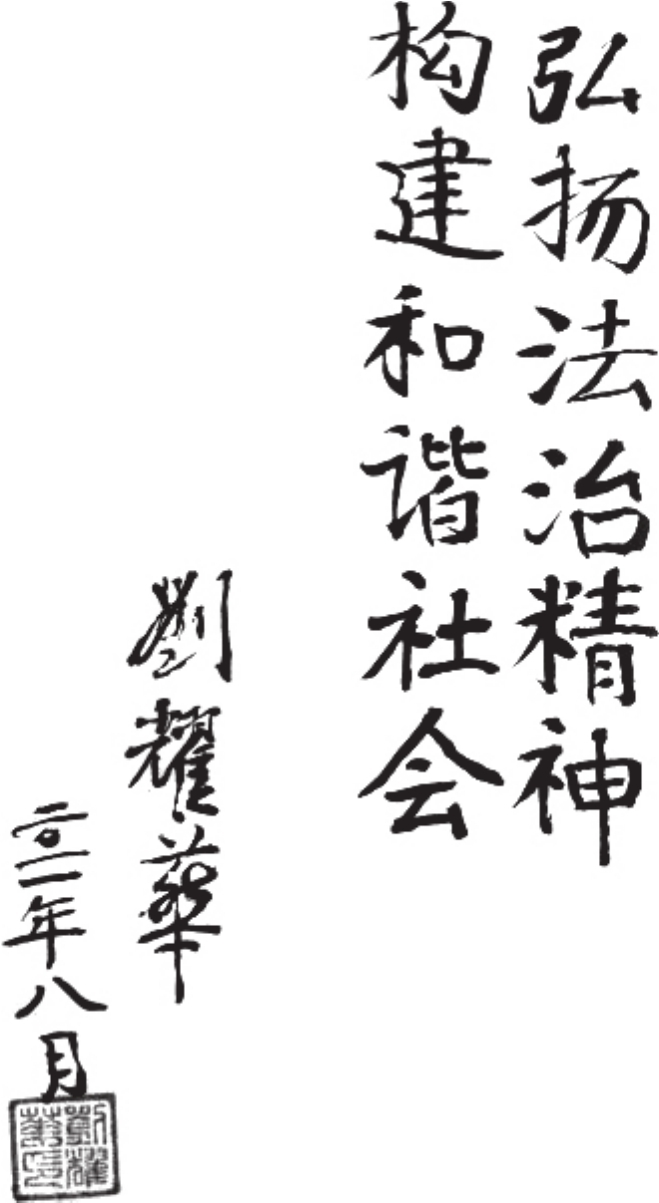 弘扬法治精神
构建和谐社会
劉耀華
二〇一一年八月
劉耀
華印